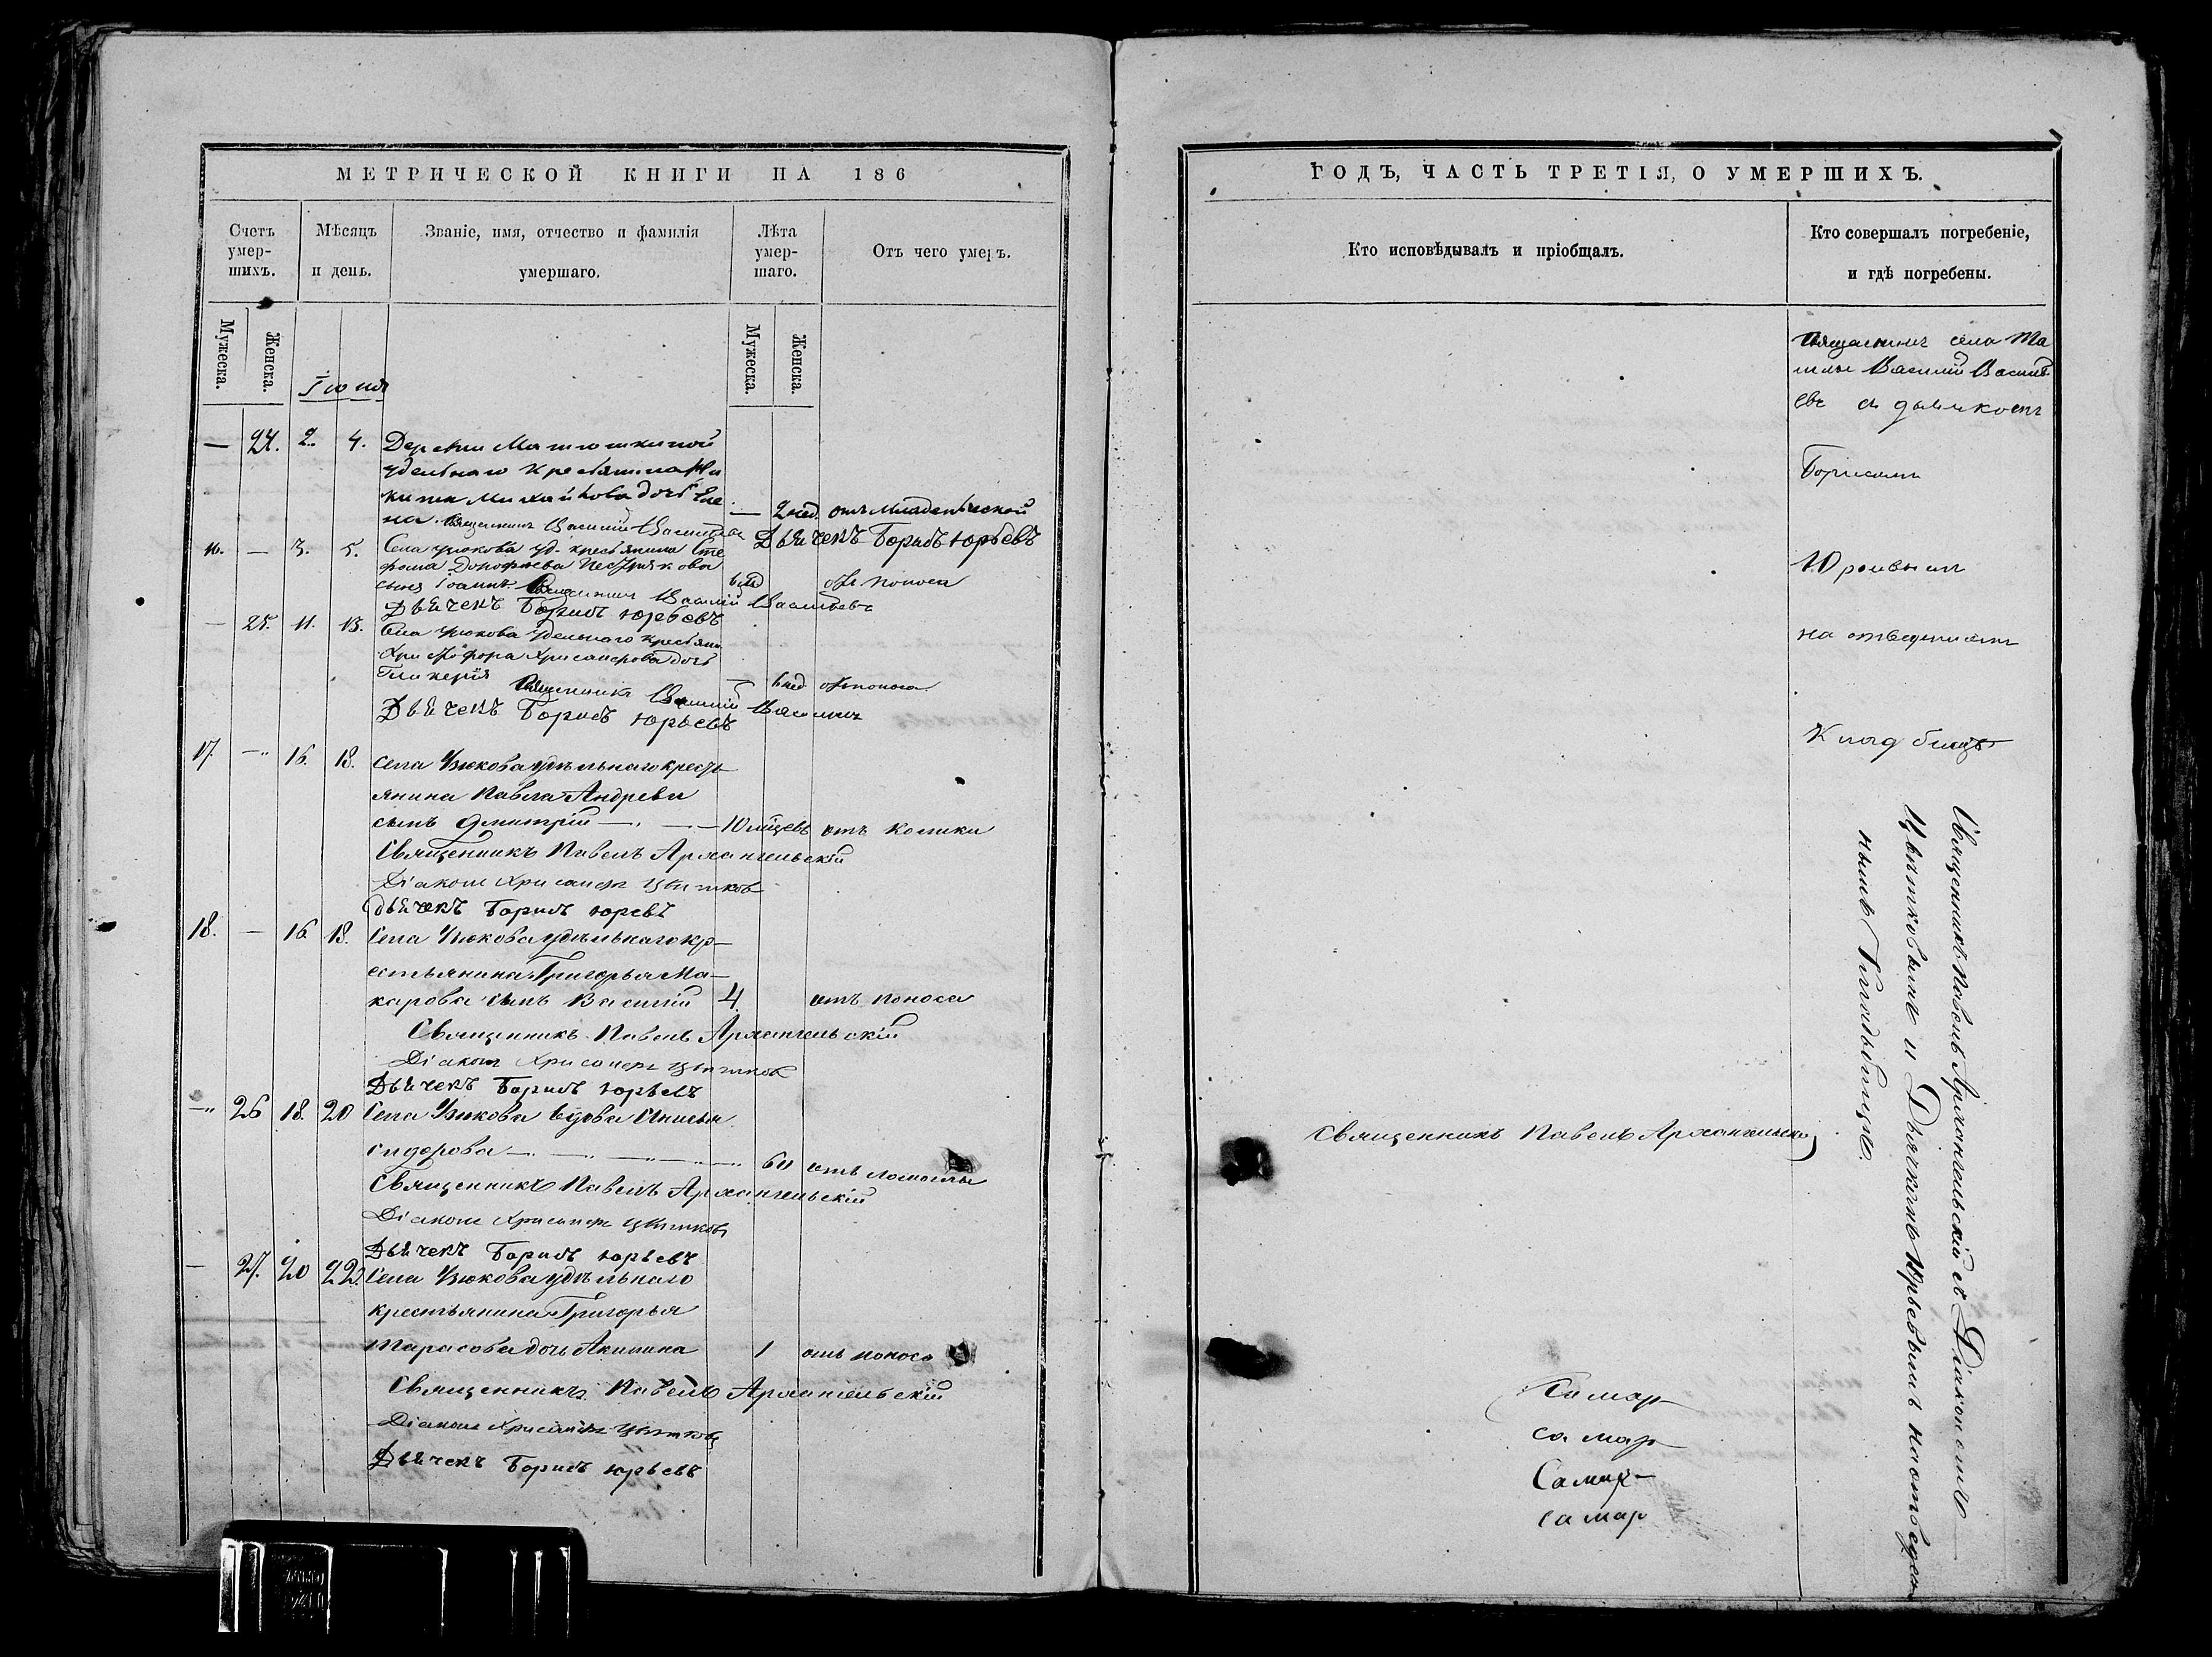 МЕТРИЧЕСКОЙ КНИГИ НА 186
Счетъ умер-шихъ.
Мѣсяцъ и день.
Званіе, имя, отчество и фамилія умершаго.
Лѣта умер-шаго.
Отъ чего умеръ.
Мужеска.
Женска.
Мужеска.
Женска.
Іюня
— 24. 2. 4. Деревни Матюшкиной
удельнаго крестьянина Ни
киты Михайлова дочь Еле
на. — 2 нед. отъ младенческой
Священникъ Василій Васильевъ
Дьячекъ Борисъ Юрьевъ
16. — 3. 5. Села Узюкова уд. крестьянина Сте
фана Дорофеева Пестрякова
сынъ Іоаннъ 6 нед отъ поноса
Священникъ Василій Васильевъ
Дьячекъ Борисъ Юрьевъ
— 25. 11. 13. Села Узюкова удельнаго крестьяни
Христофора Хрисанфова дочь
Гликерія — 6 нед отъ поноса
Священникъ Василій Васильевъ
Дьячекъ Борисъ Юрьевъ
17. — 16. 18. Села Узюкова удѣльнаго кресть
янина Павла Андреева
сынъ Дмитрій — 10 мѣцевъ отъ колики
Священникъ Павелъ Архангельскій
Діаконъ Хрисанфъ Цвѣтковъ
Дьячекъ Борисъ Юревъ
18. — 16 18. Села Узюкова удѣльнаго кр—
естьянина Григорья Ма—
карова сынъ Василій 4. отъ поноса
Священникъ Павелъ Архангельскій
Діаконъ Хрисанфъ Цвѣтков
Дьячекъ Борисъ Юрьевъ
— 26 18. 20 Села Узюкова вдова
Сидорова — 60 отъ ломоты
Священникъ Павелъ Архангельскій
Діаконъ Хрисанфъ Цвѣтковъ
Дьячекъ Борисъ Юрьевъ
— 27. 20 22. Села Узюкова удѣльнаго
крестьянина Григорья
Тарасова дочь Акилина 1 отъ поноса
Священникъ Павелъ Архангельскій
Діаконъ Хрисанфъ Цвѣтковъ
Дьячекъ Борисъ Юрьевъ
ГОДЪ, ЧАСТЬ ТРЕТІЯ, О УМЕРШИХЪ.
Кто исповѣдывалъ и пріобщалъ.
Кто совершалъ погребеніе, и гдѣ погребены.
Священникъ села Та
шлы Василій Василь
евъ съ дьячкомъ
Борисомъ
Юрьевымъ
на отведенномъ
Кладбищѣ
Священникъ Павелъ Архангельскій съ Діакономъ
Цвѣтковымъ и Дьячкомъ Юрьевымъ на отведен
нымъ Кладбищѣ.
Священникъ Павелъ Архангельскі
Самар
самар
Самар
самар